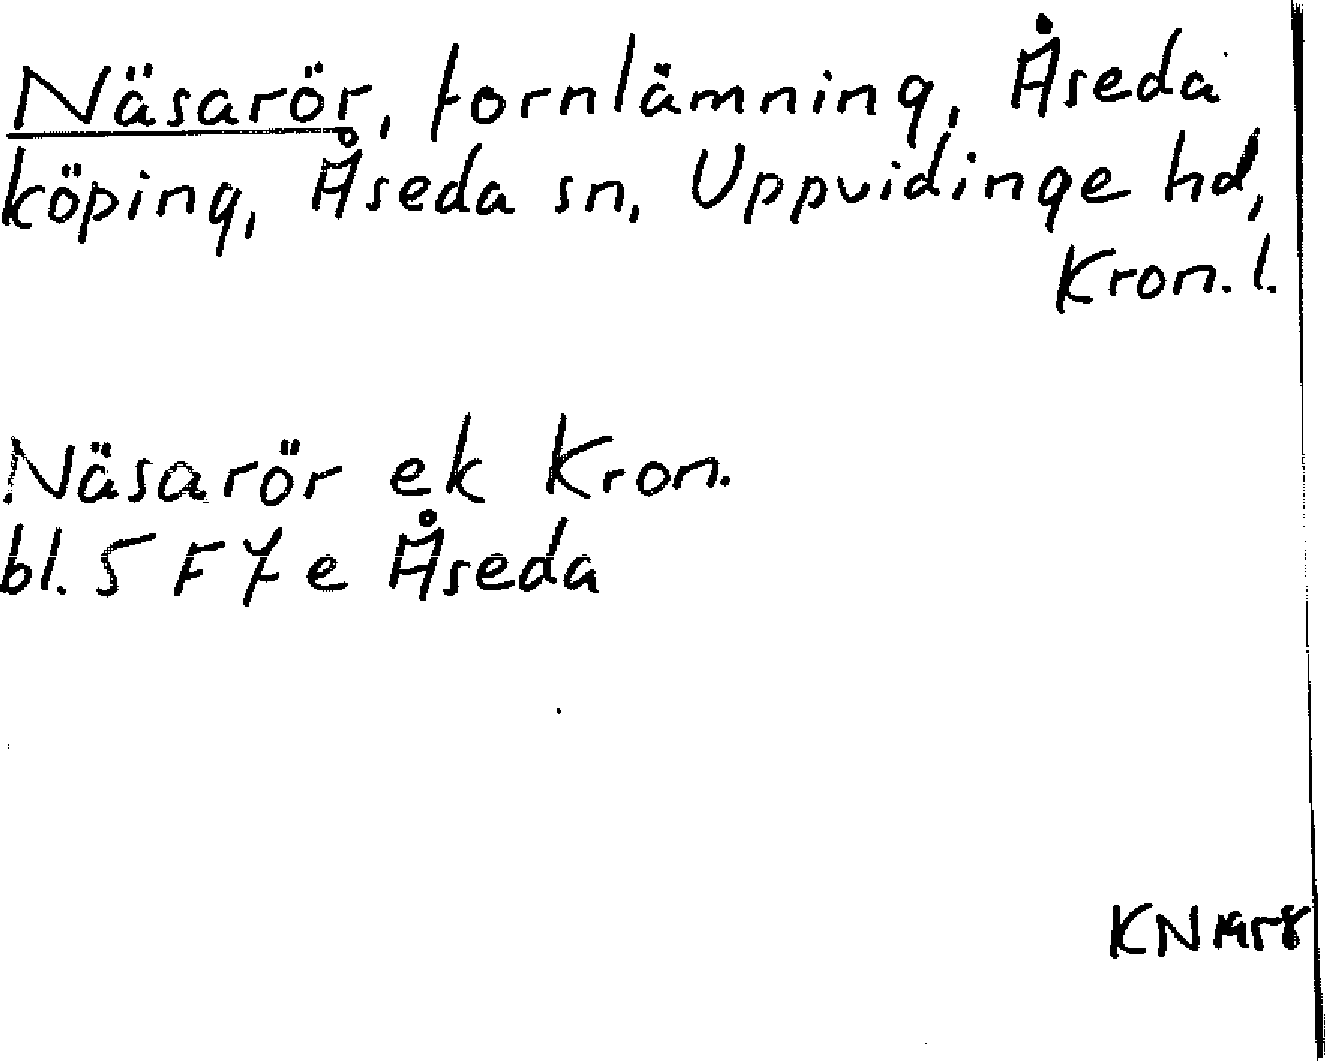 Näsarör, fornlämning, Åseda
köping, Åseda sn, Uppvidinge hd,
Kron. l.
Näsarör ek Kron.
bl. 5 F 7 e Åseda
KN 1958